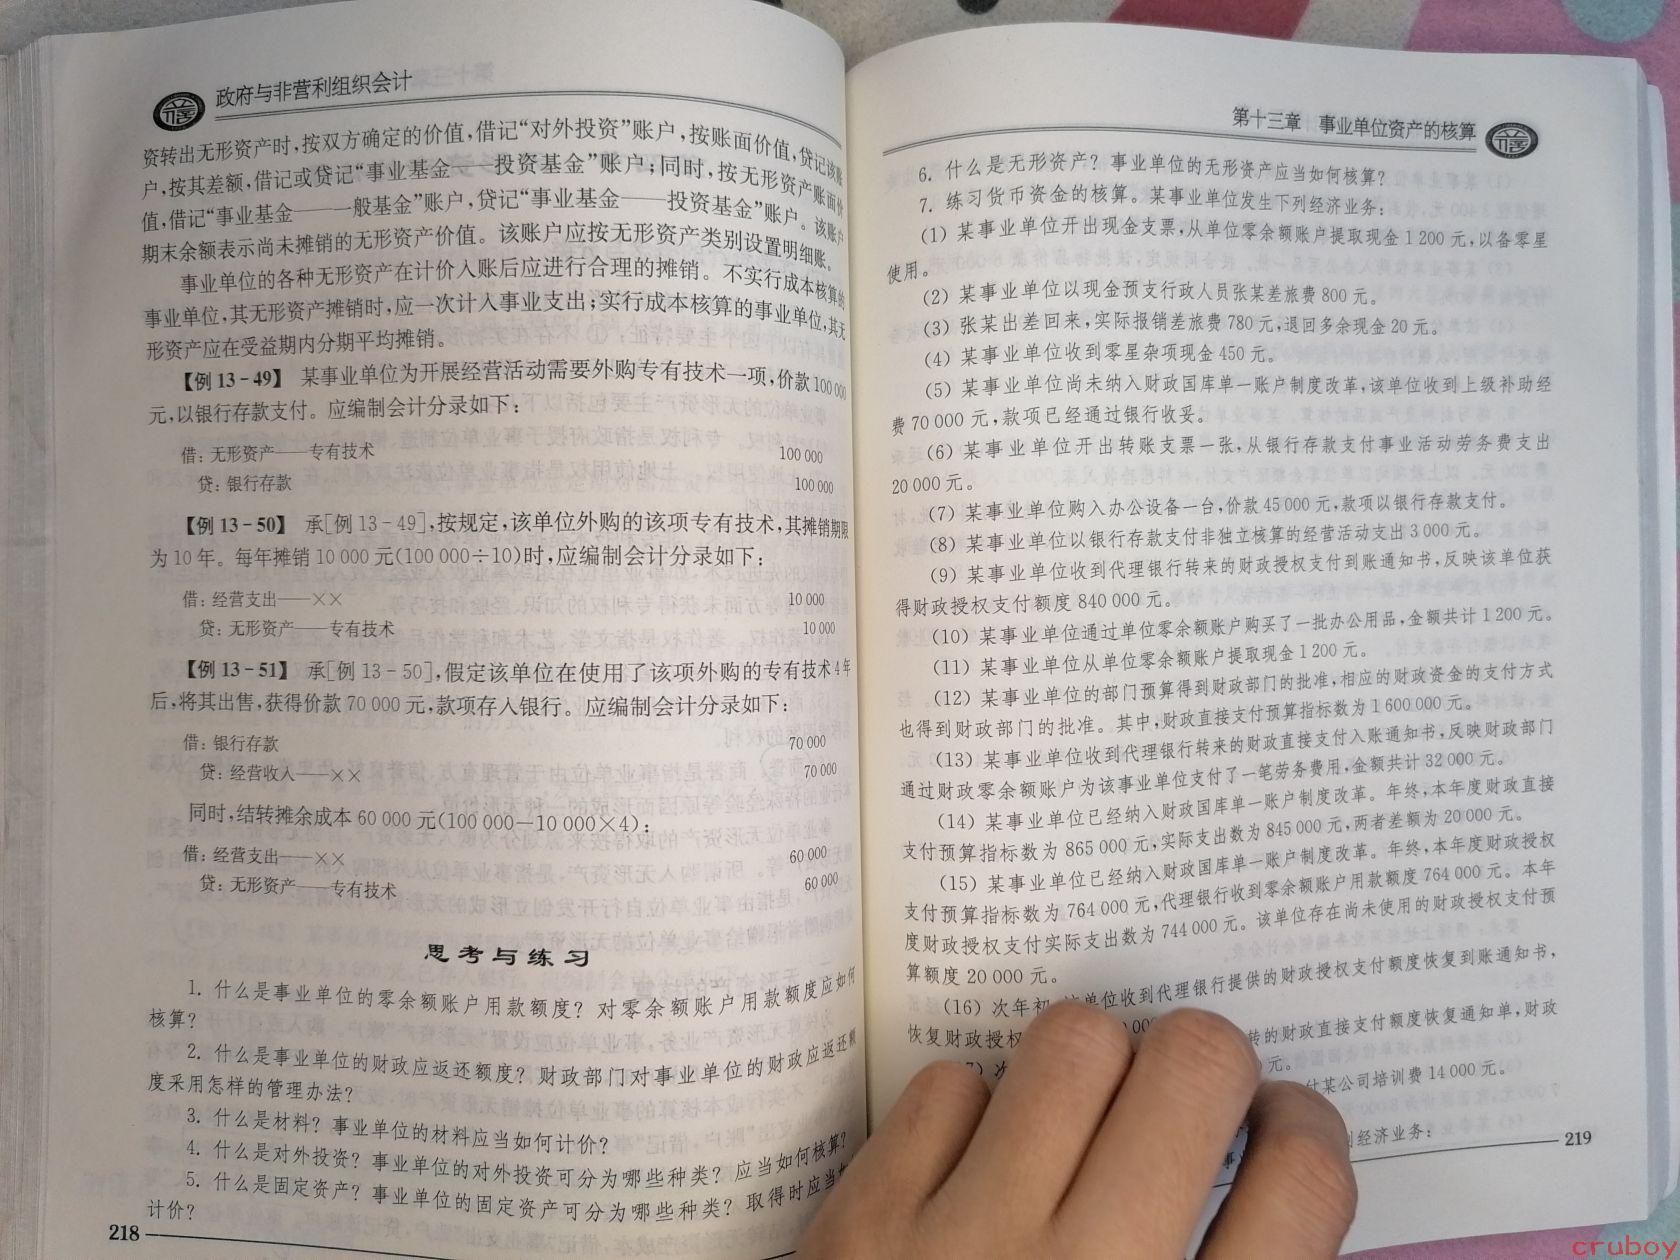 政府与非营利组织会计
资转出无形资产时,按双方确定的价值,借记“对外投资”账户,按账面价值,贷记该账
户,按其差额,借记或贷记“事业基金——投资基金”账户;同时,按无形资产账面价
值,借记“事业基金——一般基金”账户,贷记“事业基金——投资基金”账户。该账户
期末余额表示尚未摊销的无形资产价值。该账户应按无形资产类别设置明细账。
事业单位的各种无形资产在计价入账后应进行合理的摊销。不实行成本核算的
事业单位,其无形资产摊销时,应一次计入事业支出;实行成本核算的事业单位,其无
形资产应在受益期内分期平均摊销。
【例 13-49】 某事业单位为开展经营活动需要外购专有技术一项,价款 100 000
元,以银行存款支付。应编制会计分录如下:
借:无形资产——专有技术 100 000
贷:银行存款 100 000
【例 13-50】 承[例 13-49],按规定,该单位外购的该项专有技术,其摊销期限
为 10 年。每年摊销 10 000 元(100 000÷10)时,应编制会计分录如下:
借:经营支出——×× 10 000
贷:无形资产——专有技术 10 000
【例 13-51】 承[例 13-50],假定该单位在使用了该项外购的专有技术 4 年
后,将其出售,获得价款 70 000 元,款项存入银行。应编制会计分录如下:
借:银行存款 70 000
贷:经营收入——×× 70 000
同时,结转摊余成本 60 000 元(100 000—10 000×4):
借:经营支出——×× 60 000
贷:无形资产——专有技术 60 000
思考与练习
1. 什么是事业单位的零余额账户用款额度?对零余额账户用款额度应如何
核算?
2. 什么是事业单位的财政应返还额度?财政部门对事业单位的财政应返还额
度采用怎样的管理办法?
3. 什么是材料?事业单位的材料应当如何计价?
4. 什么是对外投资?事业单位的对外投资可分为哪些种类?应当如何核算?
5. 什么是固定资产?事业单位的固定资产可分为哪些种类?取得时应当如
计价?
218
第十三章 事业单位资产的核算
6. 什么是无形资产?事业单位的无形资产应当如何核算?
7. 练习货币资金的核算。某事业单位发生下列经济业务:
(1) 某事业单位开出现金支票,从单位零余额账户提取现金 1 200 元,以备零星
使用。
(2) 某事业单位以现金预支行政人员张某差旅费 800 元。
(3) 张某出差回来,实际报销差旅费 780 元,退回多余现金 20 元。
(4) 某事业单位收到零星杂项现金 450 元。
(5) 某事业单位尚未纳入财政国库单一账户制度改革,该单位收到上级补助经
费 70 000 元,款项已经通过银行收妥。
(6) 某事业单位开出转账支票一张,从银行存款支付事业活动劳务费支出
20 000 元。
(7) 某事业单位购入办公设备一台,价款 45 000 元,款项以银行存款支付。
(8) 某事业单位以银行存款支付非独立核算的经营活动支出 3 000 元。
(9) 某事业单位收到代理银行转来的财政授权支付到账通知书,反映该单位获
得财政授权支付额度 840 000 元。
(10) 某事业单位通过单位零余额账户购买了一批办公用品,金额共计 1 200 元。
(11) 某事业单位从单位零余额账户提取现金 1 200 元。
(12) 某事业单位的部门预算得到财政部门的批准,相应的财政资金的支付方式
也得到财政部门的批准。其中,财政直接支付预算指标数为 1 600 000 元。
(13) 某事业单位收到代理银行转来的财政直接支付入账通知书,反映财政部门
通过财政零余额账户为该事业单位支付了一笔劳务费用,金额共计 32 000 元。
(14) 某事业单位已经纳入财政国库单一账户制度改革。年终,本年度财政直接
支付预算指标数为 865 000 元,实际支出数为 845 000 元,两者差额为 20 000 元。
(15) 某事业单位已经纳入财政国库单一账户制度改革。年终,本年度财政授权
支付预算指标数为 764 000 元,代理银行收到零余额账户用款额度 764 000 元。本年
度财政授权支付实际支出数为 744 000 元。该单位存在尚未使用的财政授权支付预
算额度 20 000 元。
(16) 次年初 单位收到代理银行提供的财政授权支付额度恢复到账通知书,
恢复财政授权 000
次 转的财政直接支付额度恢复通知单,财政
元。
付某公司培训费 14 000 元。
列经济业务:
219
cruboy